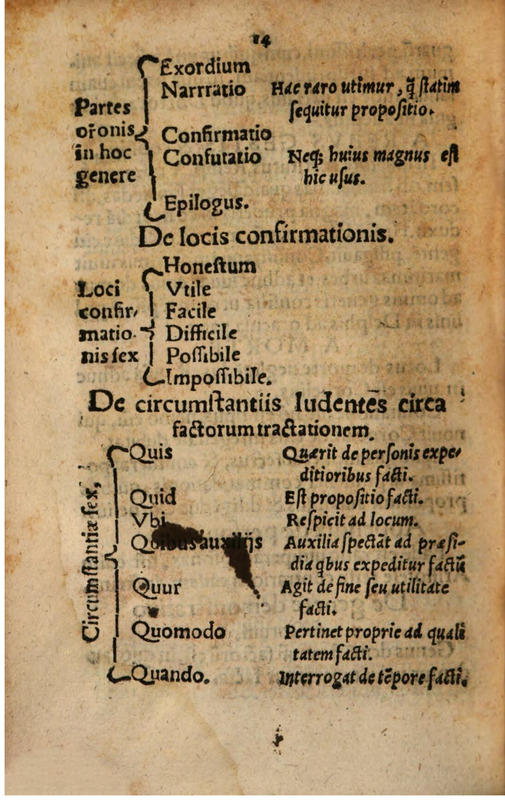 14
Exordium
Narrratio Hac raro utimur, q̃ statim
Partes sequitur propositio.
or̃onis Confirmatio
in hoc Confutatio Neq; huius magnus est
genere hic usus.
Epilogus.
De locis confirmationis.
Honestum
Loci Vtile
confir- Facile
matio- Difficile
nis sex Possibile
Impossibile.
De circumstantiis Iudentẽs circa
factorum tractationem.
Circumstantiæ sex,
Quis Quærit de personis expe-
ditioribus facti.
Quid Est propositio facti.
Vbi Respicit ad locum.
Quibus auxilijs Auxilia spectãt ad præsi-
dia qbus expeditur factũ
Quur Agit de fine seu utilitate
facti.
Quomodo Pertinet proprie ad quali
tatem facti.
Quando. Interrogat de tẽpore facti.